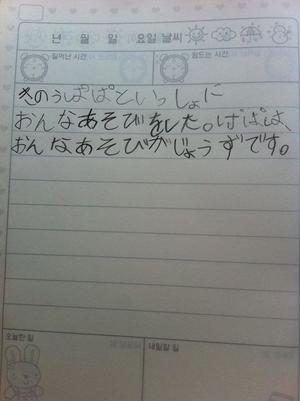 년 월 일 요일 날씨
일어난 시간 잠드는 시간
きのうぱぱといっしょに
おんなあそびをした。ぱぱは、
おんなあそびがじょうずです。
오늘한 일 내일할 일